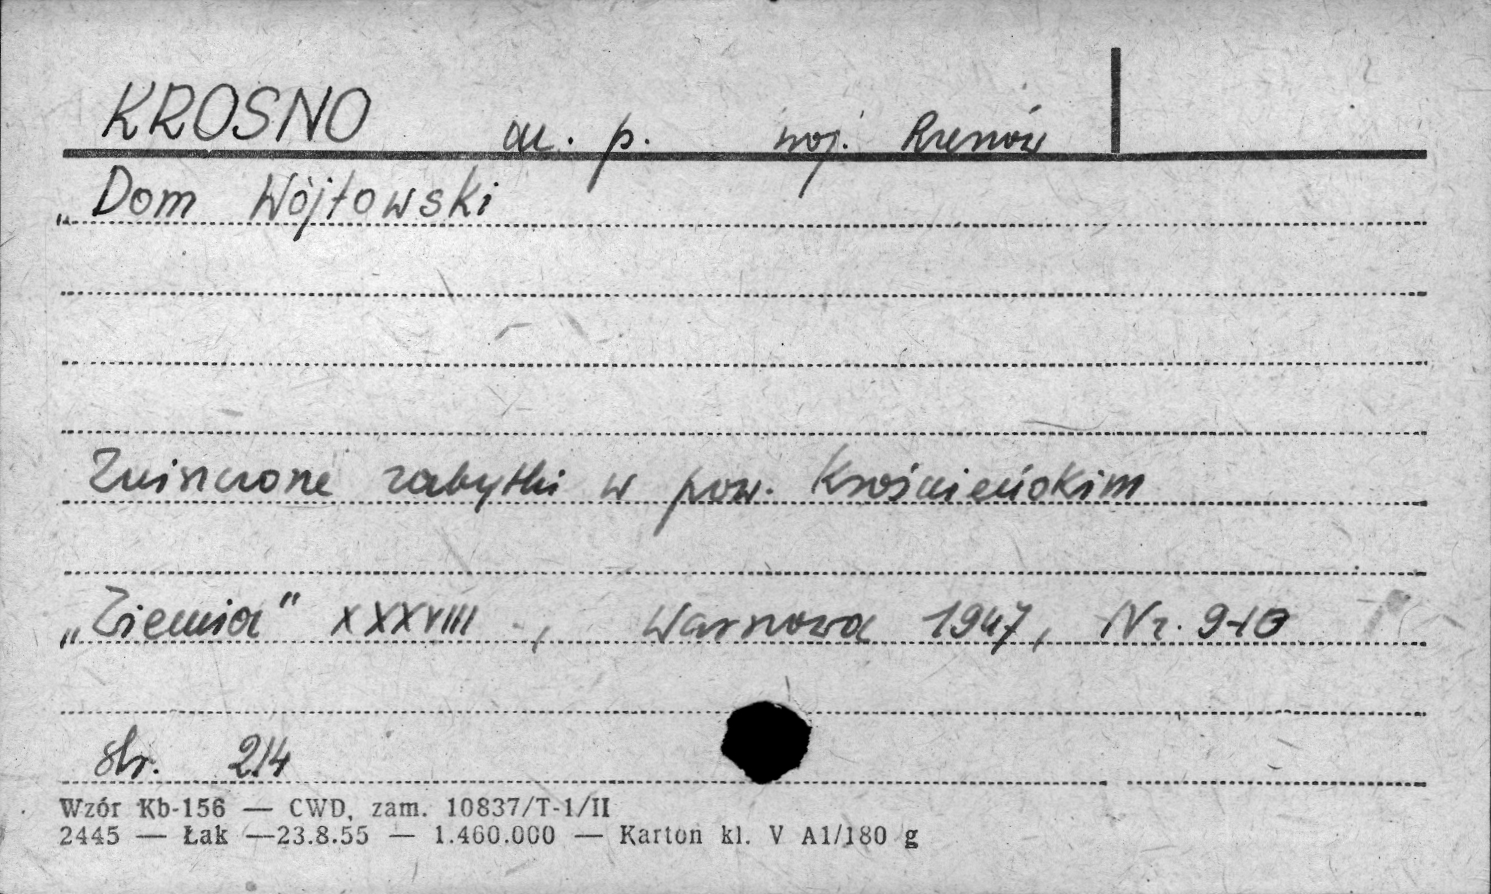 KROSNO m. p. woj. Rzeszów
„Dom Wójtowski
Zniszczone zabytki w pow. Krościeńskim
„Ziemia" XXXVIII, Warszawa 1947, Nr. 9-10
str. 214
Wzór Kb-156 — CWD, zam. 10837/T-1/II
2445 — Łak —23.8.55 — 1.460.000 — Karton kl. V A1/180 g